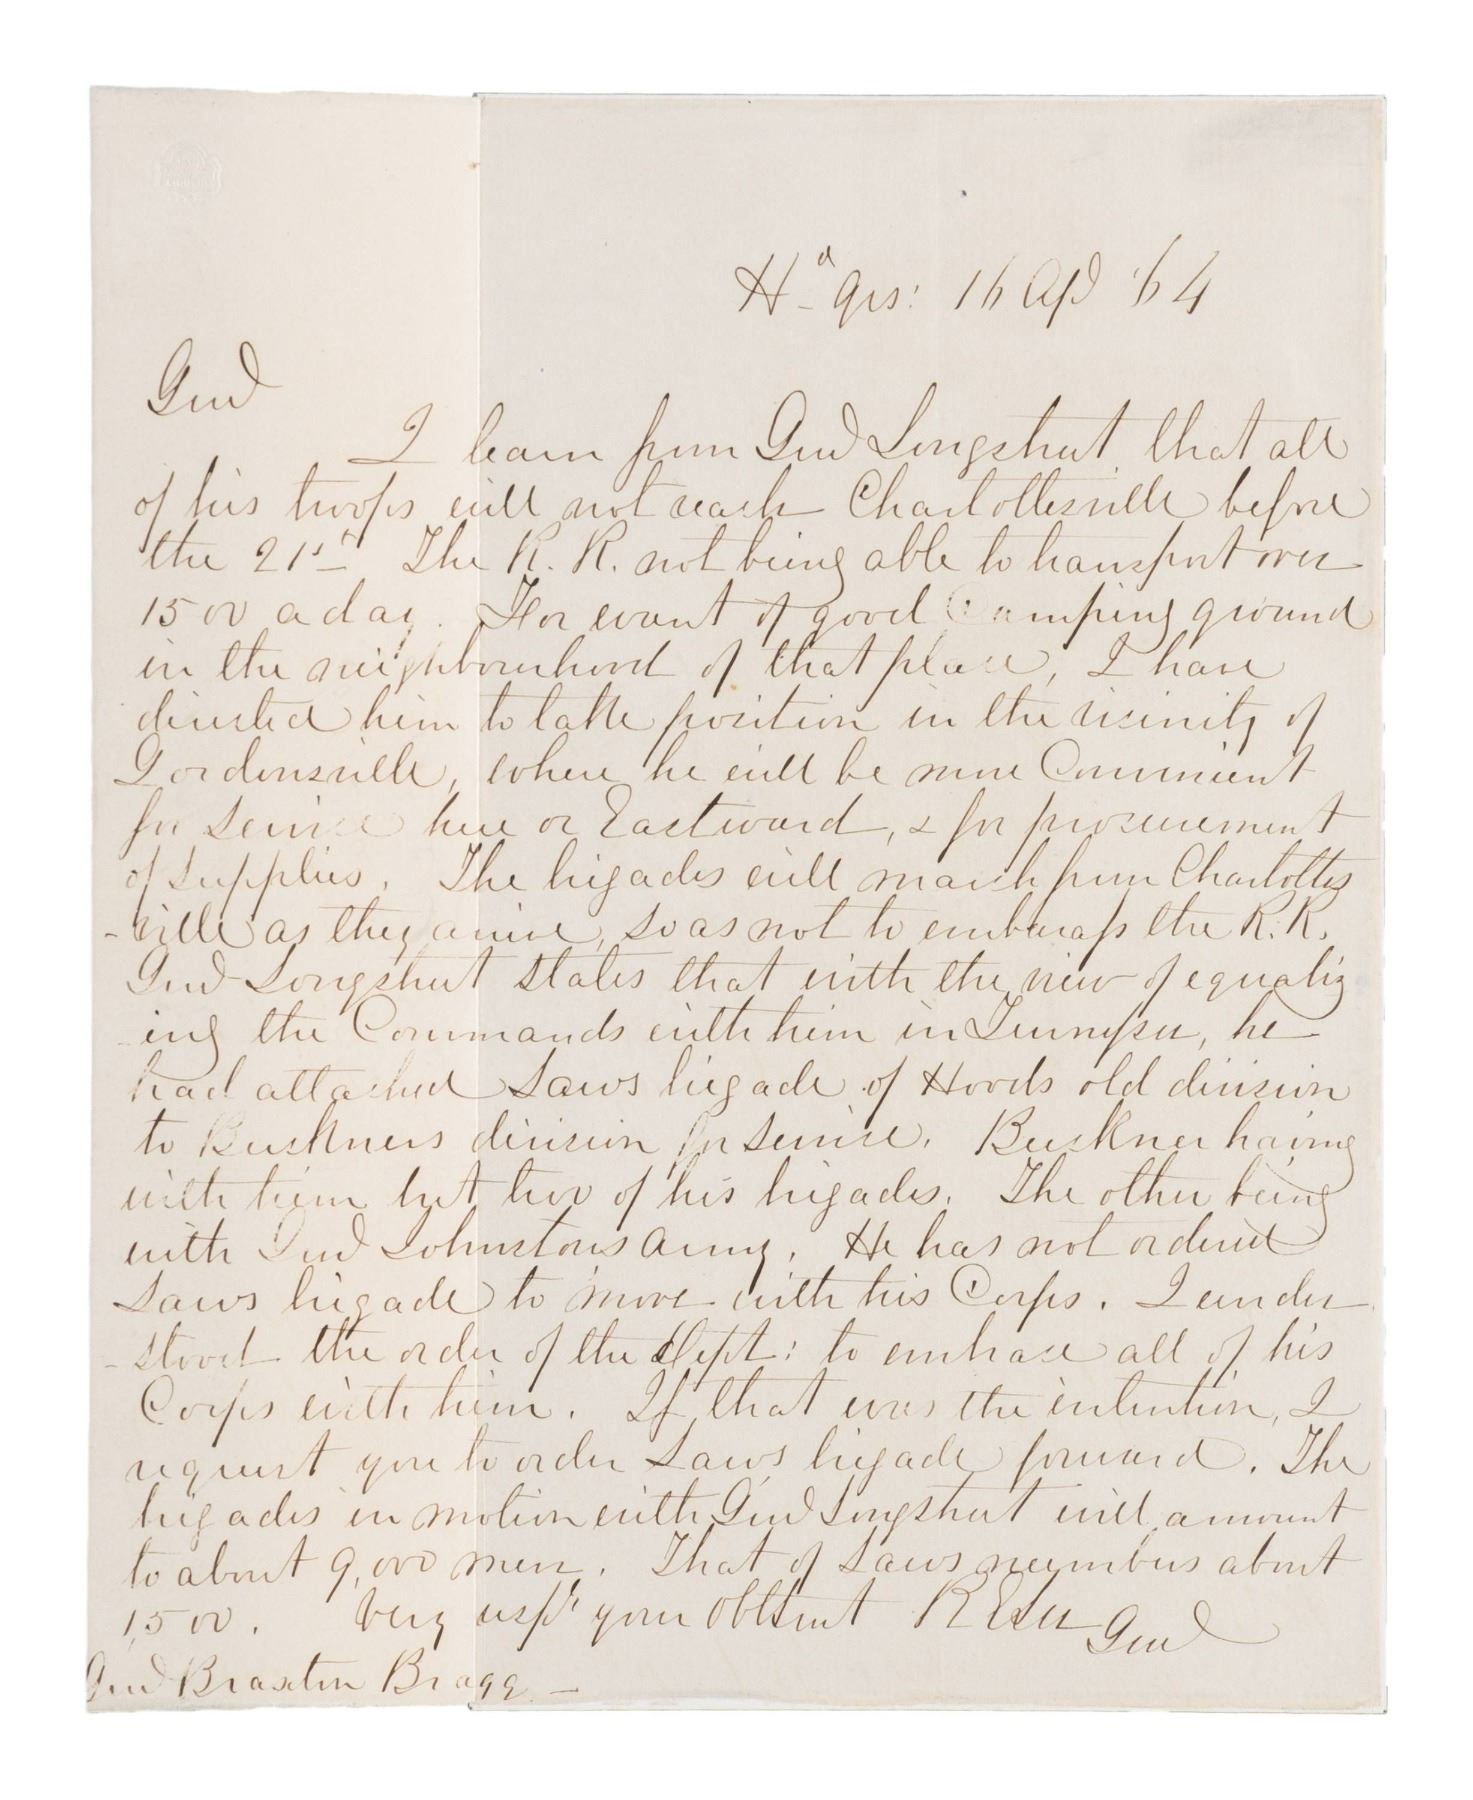 Hd qrs: 16 Apl '64
Genl
I learn from Genl Longstreet that all
of his troops will not reach Charlottesville before
the 21st The R. R. not being able to transport over
1500 a day. For want of good Camping ground
in the neighbourhood of that place, I have
directed him to take position in the vicinity of
Gordonsville, where he will be more Convenient
for service here or Eastward, & for procurement
of supplies. The brigades will march from Charlottes
-ville as they arrive, so as not to embarass the R. R.
Genl Longstreet states that with the view of equaliz
ing the Commands with him in Tennessee, he
had attached Laws brigade of Hoods old division
to Buckners division for service. Buckner having
with him but two of his brigades. The other being
with Genl Johnstons Army. He has not ordered
Laws brigade to move with his Corps. I under
-stood the order of the Dept: to embrace all of his
Corps with him. If that was the intention, I
request you to order Laws brigade forward. The
brigades in motion with Genl Longstreet will amount
to about 9,000 men. That of Laws numbers about
1,500. Very respt your obt servt R E Lee
Genl
Genl Braxton Bragg -